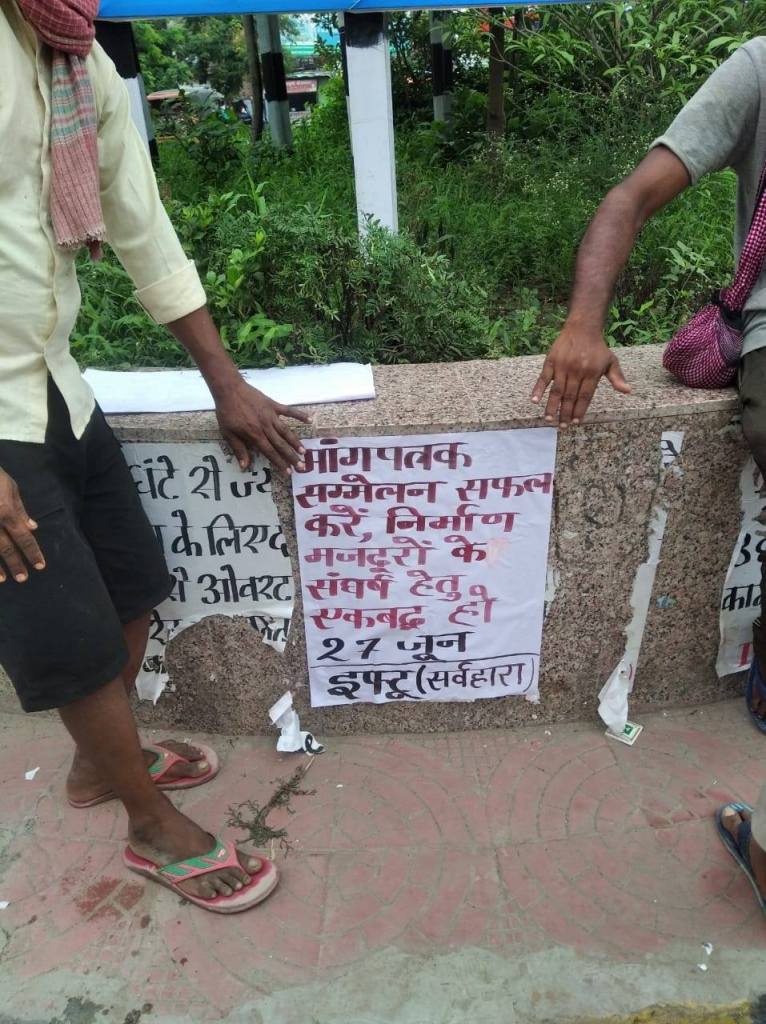 मांगपत्रक
सम्मेलन सफल
करें, निर्माण
मजदूरों के
संघर्ष हेतु
एकबद्ध हो
27 जून
इफ्टू (सर्वहारा)
घंटे से
के लिए
से ओवरट